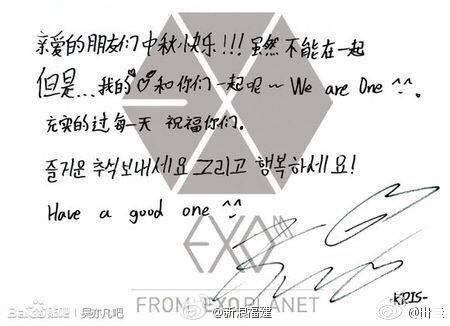 亲爱的朋友们 中秋小快乐!!! 虽然不能在一起
但是... 我的♡和你们一起呢~ We are One ^^.
充实的过每一天 祝福你们.
즐거운 추석보내세요 그리고 행복하세요!
Have a good one ^^
EXO
FROM. EXOPLANET
-KRIS-
Bai贴吧 | 吴亦凡吧
@新浪福建